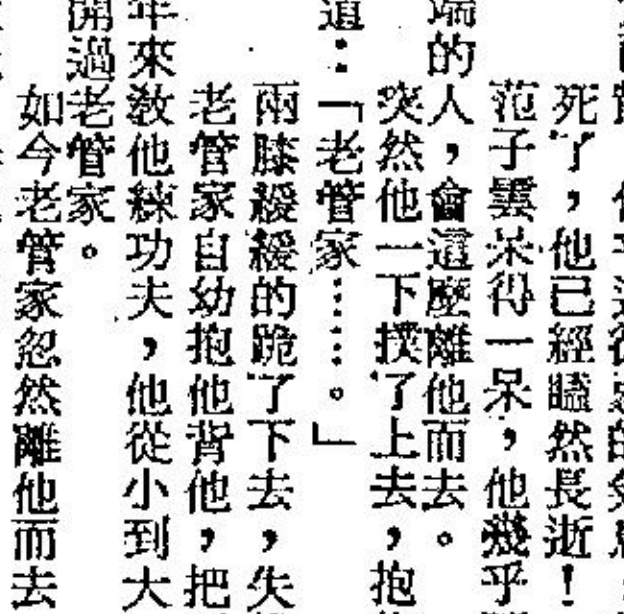 死了，他已經瞌然長逝！
范子雲呆得一呆，他幾乎
端的人，會這麼離他而去。
突然他一下撲了上去，抱
道：「老管家……。」
兩膝緩緩的跪了下去，失
老管家自幼抱他背他，把
年來教他練功夫，他從小到大
開過老管家。
如今老管家忽然離他而去